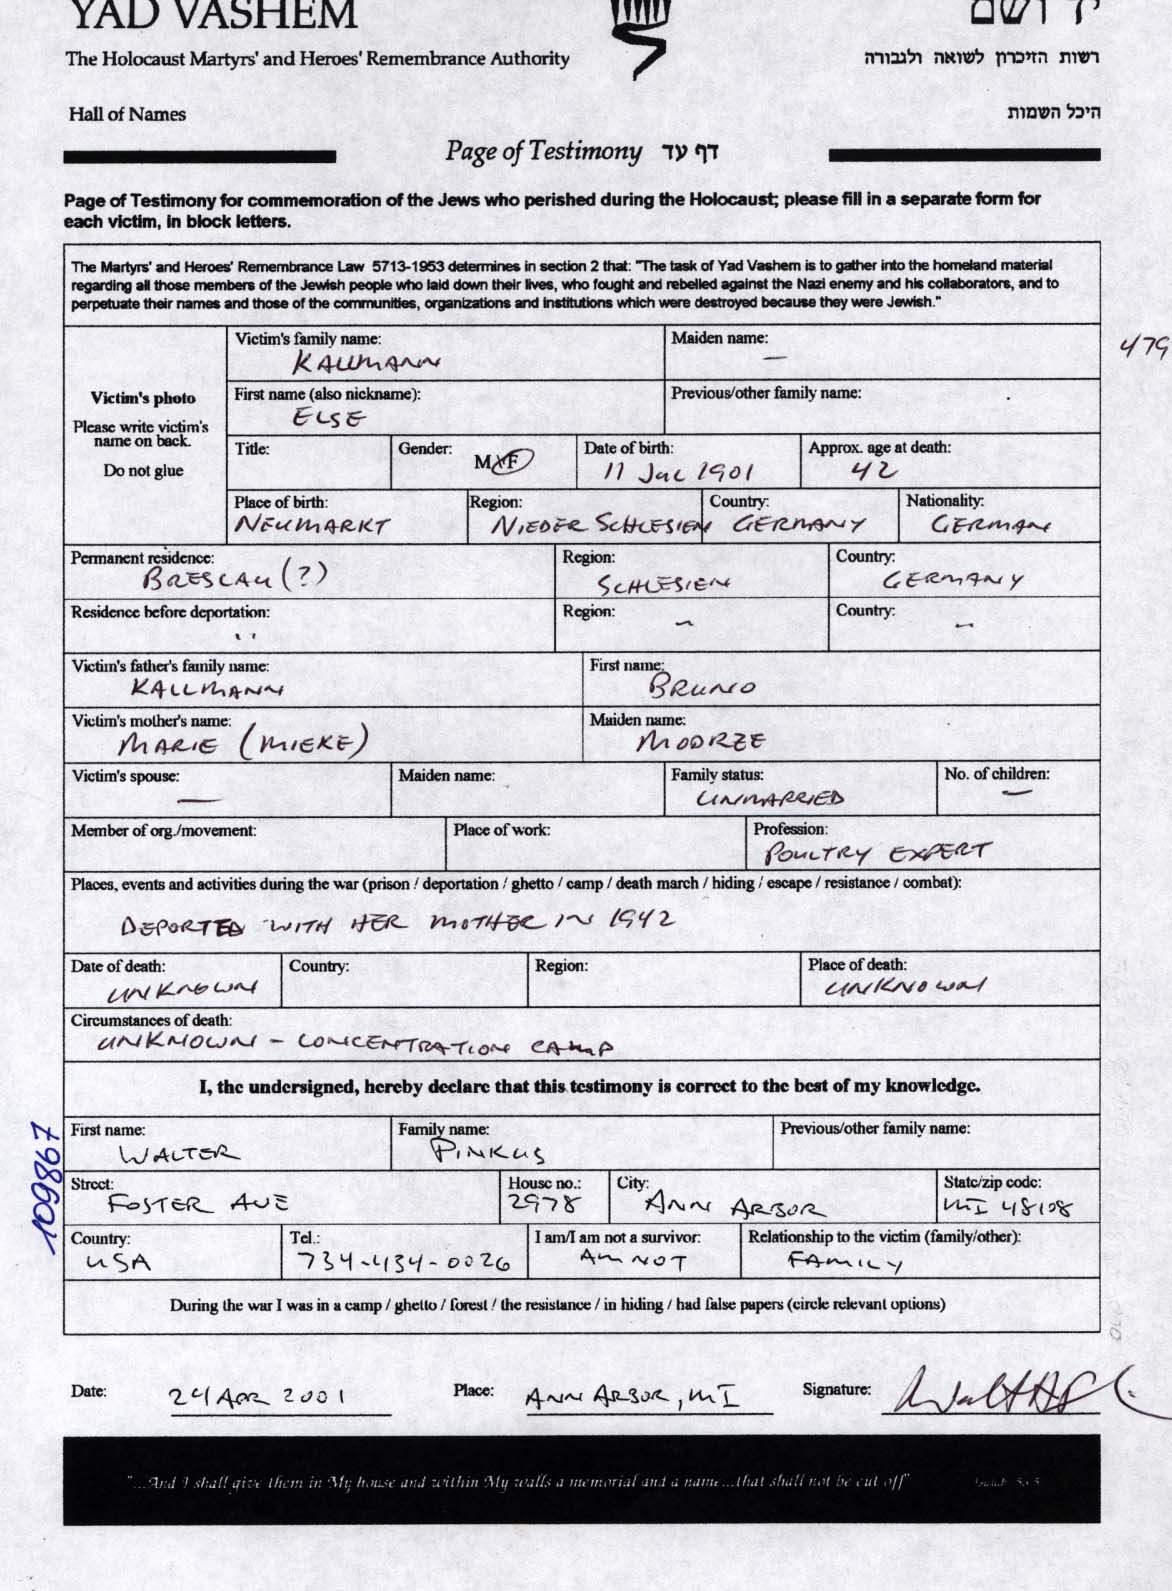 YAD VASHEM
יד ושם
The Holocaust Martyrs' and Heroes' Remembrance Authority
רשות הזיכרון לשואה ולגבורה
Hall of Names
היכל השמות
Page of Testimony דף עד
Page of Testimony for commemoration of the Jews who perished during the Holocaust; please fill in a separate form for
each victim, in block letters.
The Martyrs' and Heroes' Remembrance Law 5713-1953 determines in section 2 that: "The task of Yad Vashem is to gather into the homeland material
regarding all those members of the Jewish people who laid down their lives, who fought and rebelled against the Nazi enemy and his collaborators, and to
perpetuate their names and those of the communities, organizations and institutions which were destroyed because they were Jewish."
479
Victim's photo
Please write victim's
name on back.
Do not glue
Victim's family name: KALLMANN
Maiden name: —
First name (also nickname): ELSE
Previous/other family name:
Title:
Gender: M/F
Date of birth: 11 JUL 1901
Approx. age at death: 42
Place of birth: NEUMARKT
Region: NIEDER SCHLESIEN
Country: GERMANY
Nationality: GERMAN
Permanent residence: BRESLAU (?)
Region: SCHLESIEN
Country: GERMANY
Residence before deportation: ''
Region: ~
Country: ~
Victim's father's family name: KALLMANN
First name: BRUNO
Victim's mother's name: MARIE (MIEKE)
Maiden name: MODRZE
Victim's spouse: —
Maiden name:
Family status: UNMARRIED
No. of children: —
Member of org./movement:
Place of work:
Profession: POULTRY EXPERT
Places, events and activities during the war (prison / deportation / ghetto / camp / death march / hiding / escape / resistance / combat):
DEPORTED WITH HER MOTHER IN 1942
Date of death: UNKNOWN
Country:
Region:
Place of death: UNKNOWN
Circumstances of death:
UNKNOWN - CONCENTRATION CAMP
I, the undersigned, hereby declare that this testimony is correct to the best of my knowledge.
109867
First name: WALTER
Family name: PINKUS
Previous/other family name:
Street: FOSTER AVE
House no.: 2978
City: ANN ARBOR
State/zip code: MI 48108
Country: USA
Tel.: 734-434-0026
I am/I am not a survivor: AM NOT
Relationship to the victim (family/other): FAMILY
During the war I was in a camp / ghetto / forest / the resistance / in hiding / had false papers (circle relevant options)
Date: 24 APR 2001
Place: ANN ARBOR, MI
Signature:
"...And I shall give them in My house and within My walls a memorial and a name...that shall not be cut off"